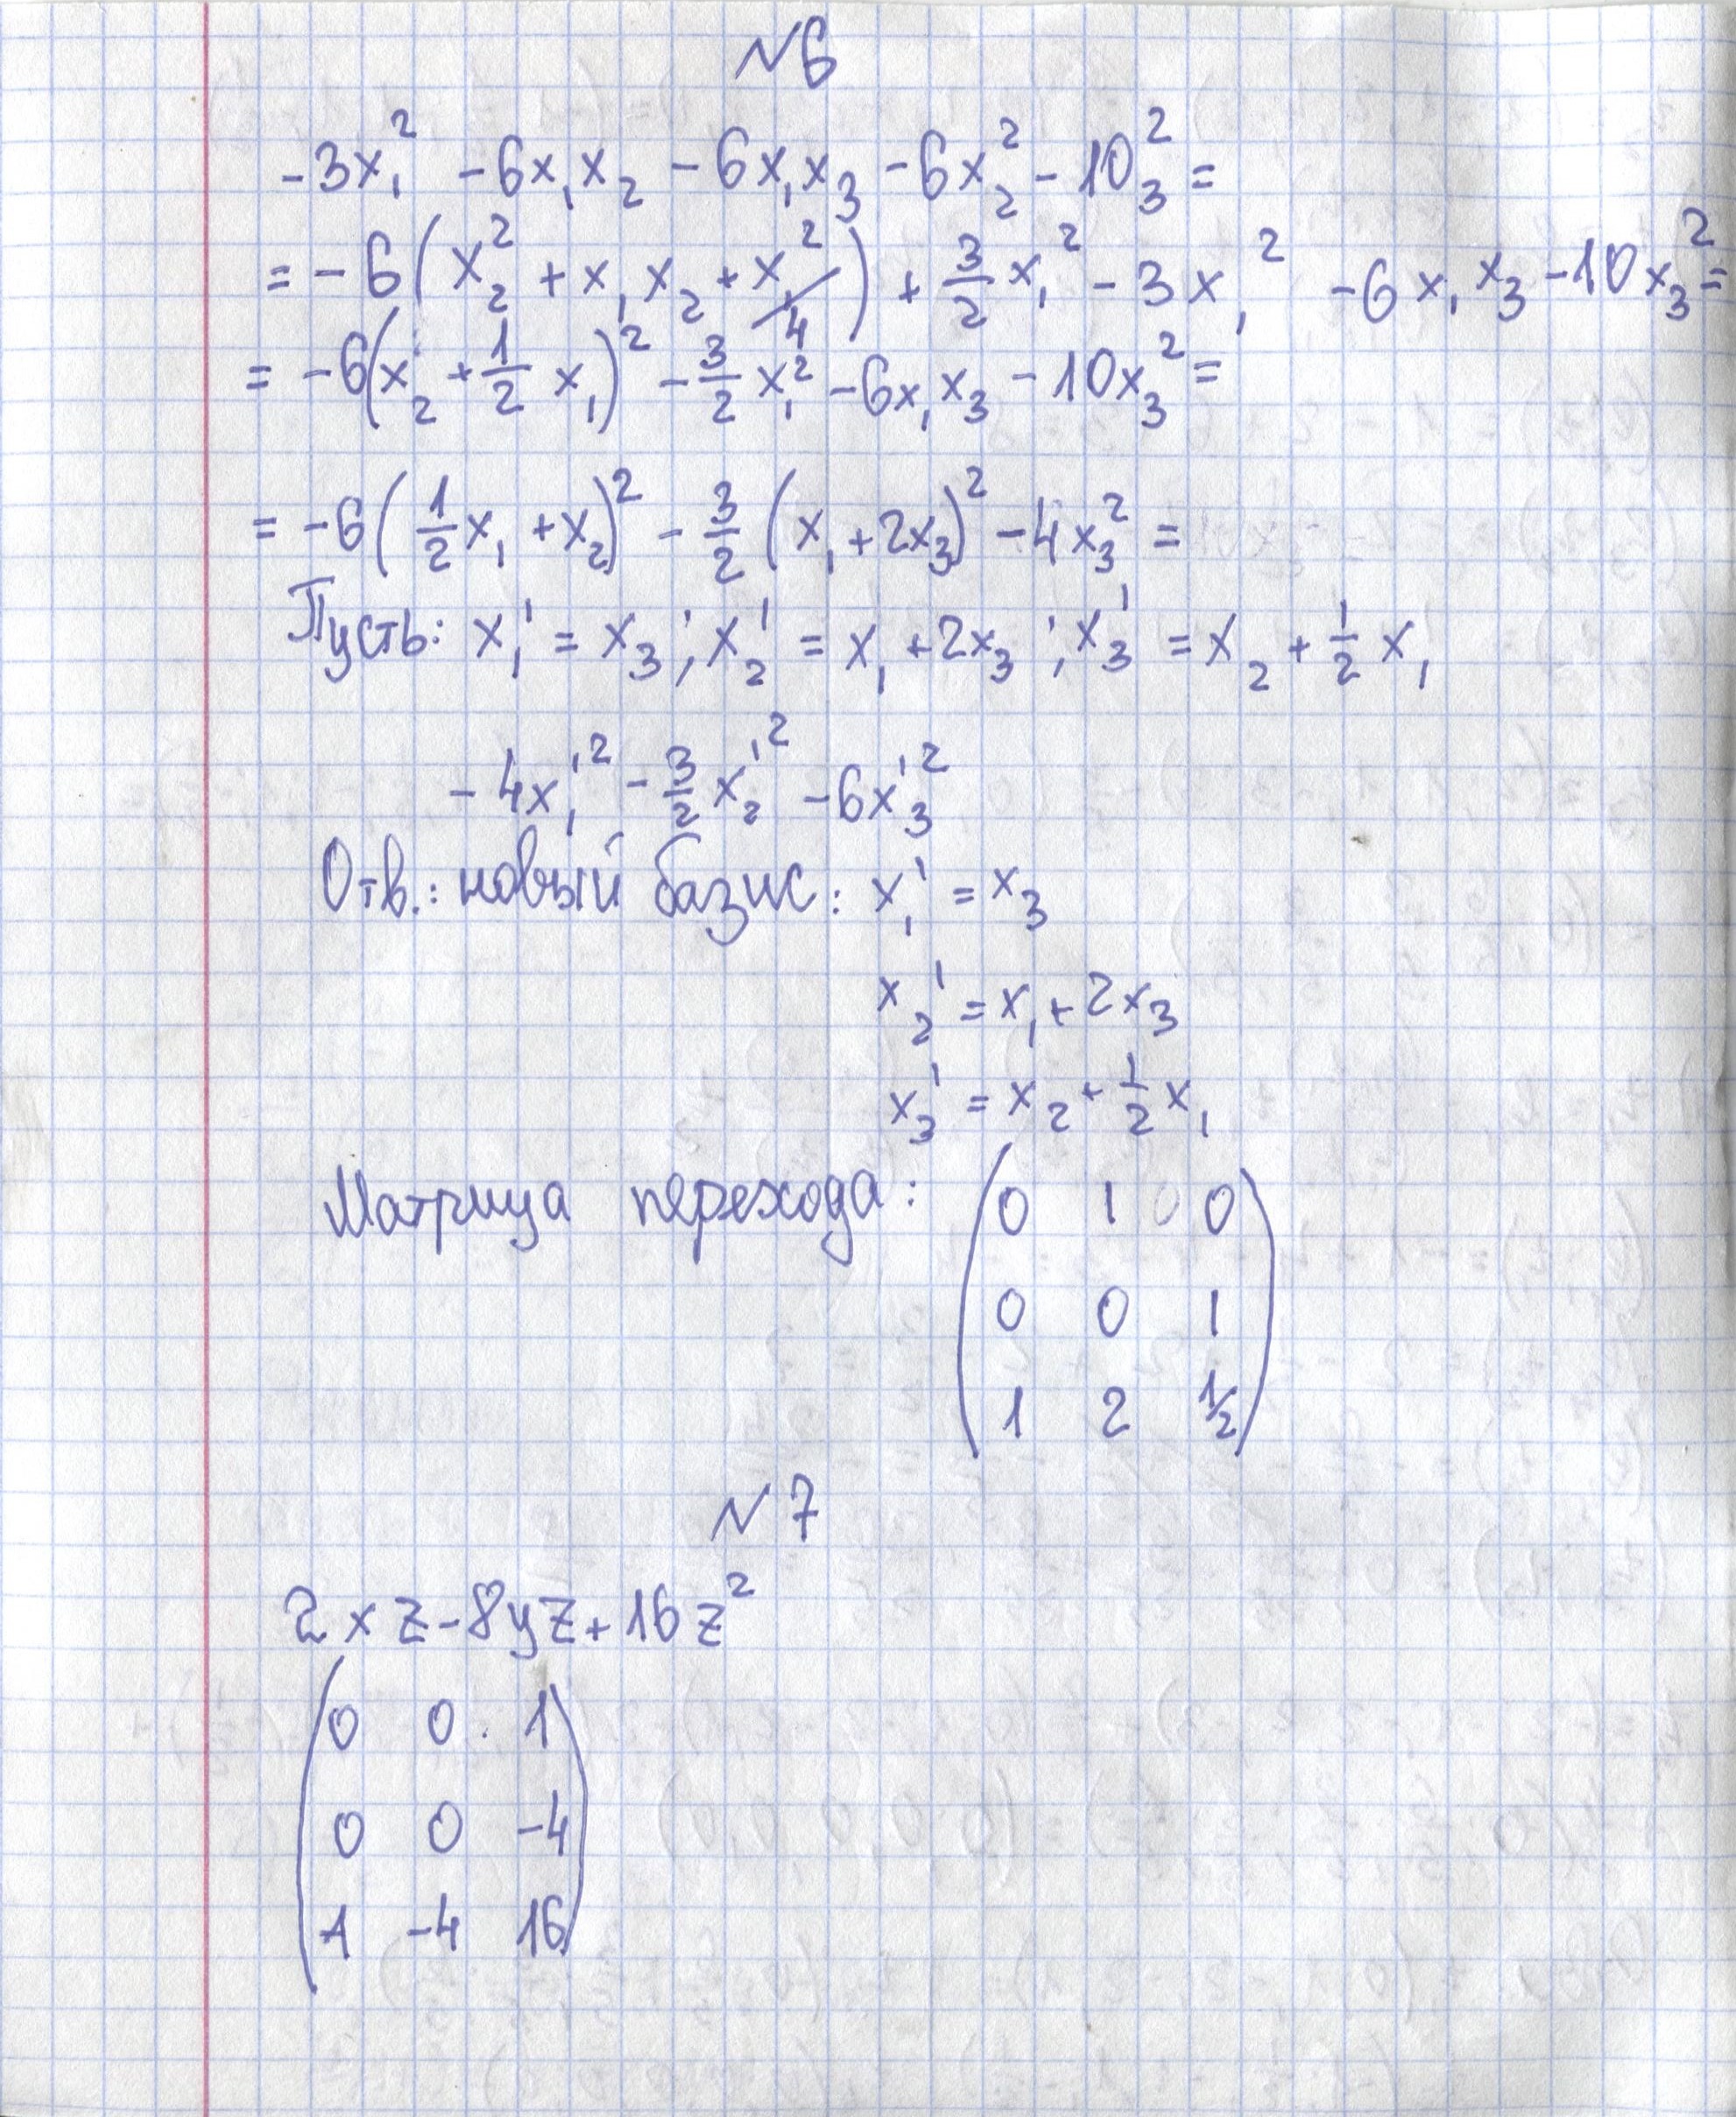 №6
-3x₁² -6x₁x₂ -6x₁x₃ -6x₂² -10₃² =
= -6(x₂² + x₁x₂ + x₁²/4) + 3/2 x₁² -3x₁² -6x₁x₃ -10x₃² =
= -6(x₂ + 1/2 x₁)² - 3/2 x₁² -6x₁x₃ -10x₃² =
= -6(1/2 x₁ + x₂)² - 3/2 (x₁ + 2x₃)² -4x₃² =
Пусть: x₁' = x₃; x₂' = x₁ + 2x₃; x₃' = x₂ + 1/2 x₁
-4x₁'² - 3/2 x₂'² -6x₃'²
Отв.: новый базис: x₁' = x₃
x₂' = x₁ + 2x₃
x₃' = x₂ + 1/2 x₁
Матрица перехода: (0 1 0
0 0 1
1 2 1/2)
№7
2xz-8yz+16z²
(0 0 1
0 0 -4
1 -4 16)